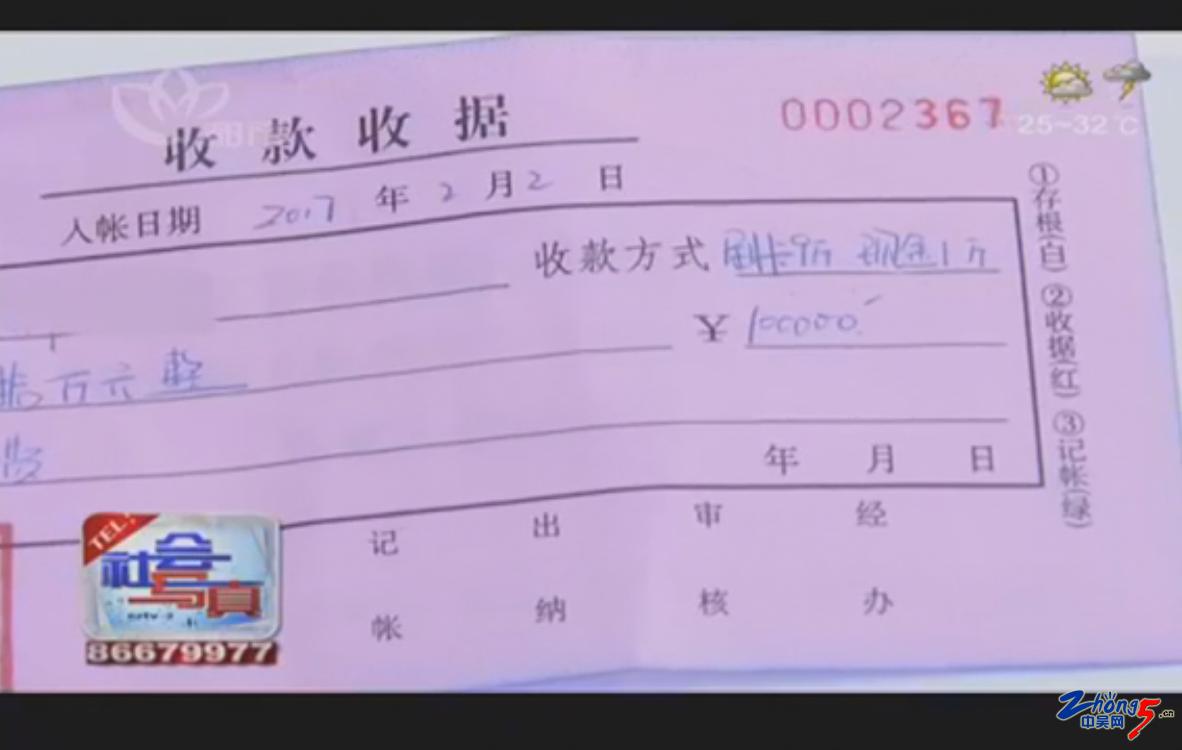 收款收据
0002367
25~32℃
入帐日期 2017 年 2 月 2 日
收款方式 刷卡9万 现金1万
¥ 100000.
拾万元整
年 月 日
①存根(白) ②收据(红) ③记帐(绿)
记帐 出纳 审核 经办
TEL:
社会写真
86679977
Zhong5.cn
中吴网